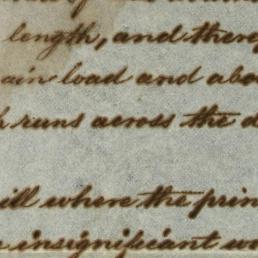 length, and there
ain load and abo
runs across the d
ill where the prin
insignificant wo